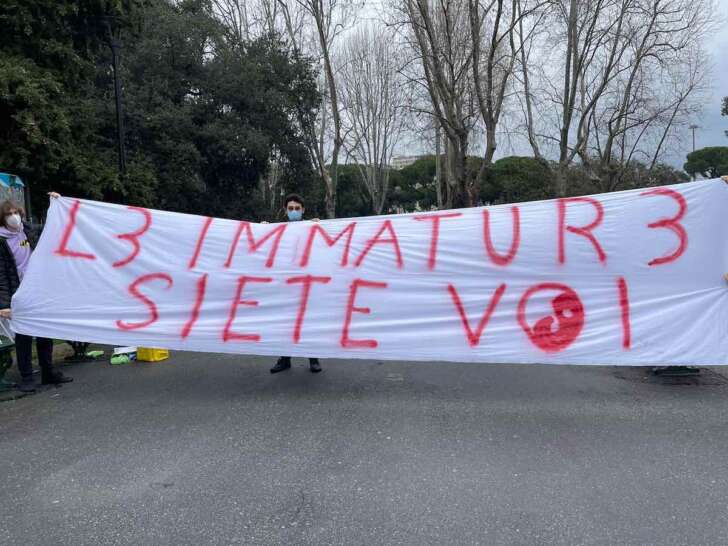 L3 IMMATUR3
SIETE VOI